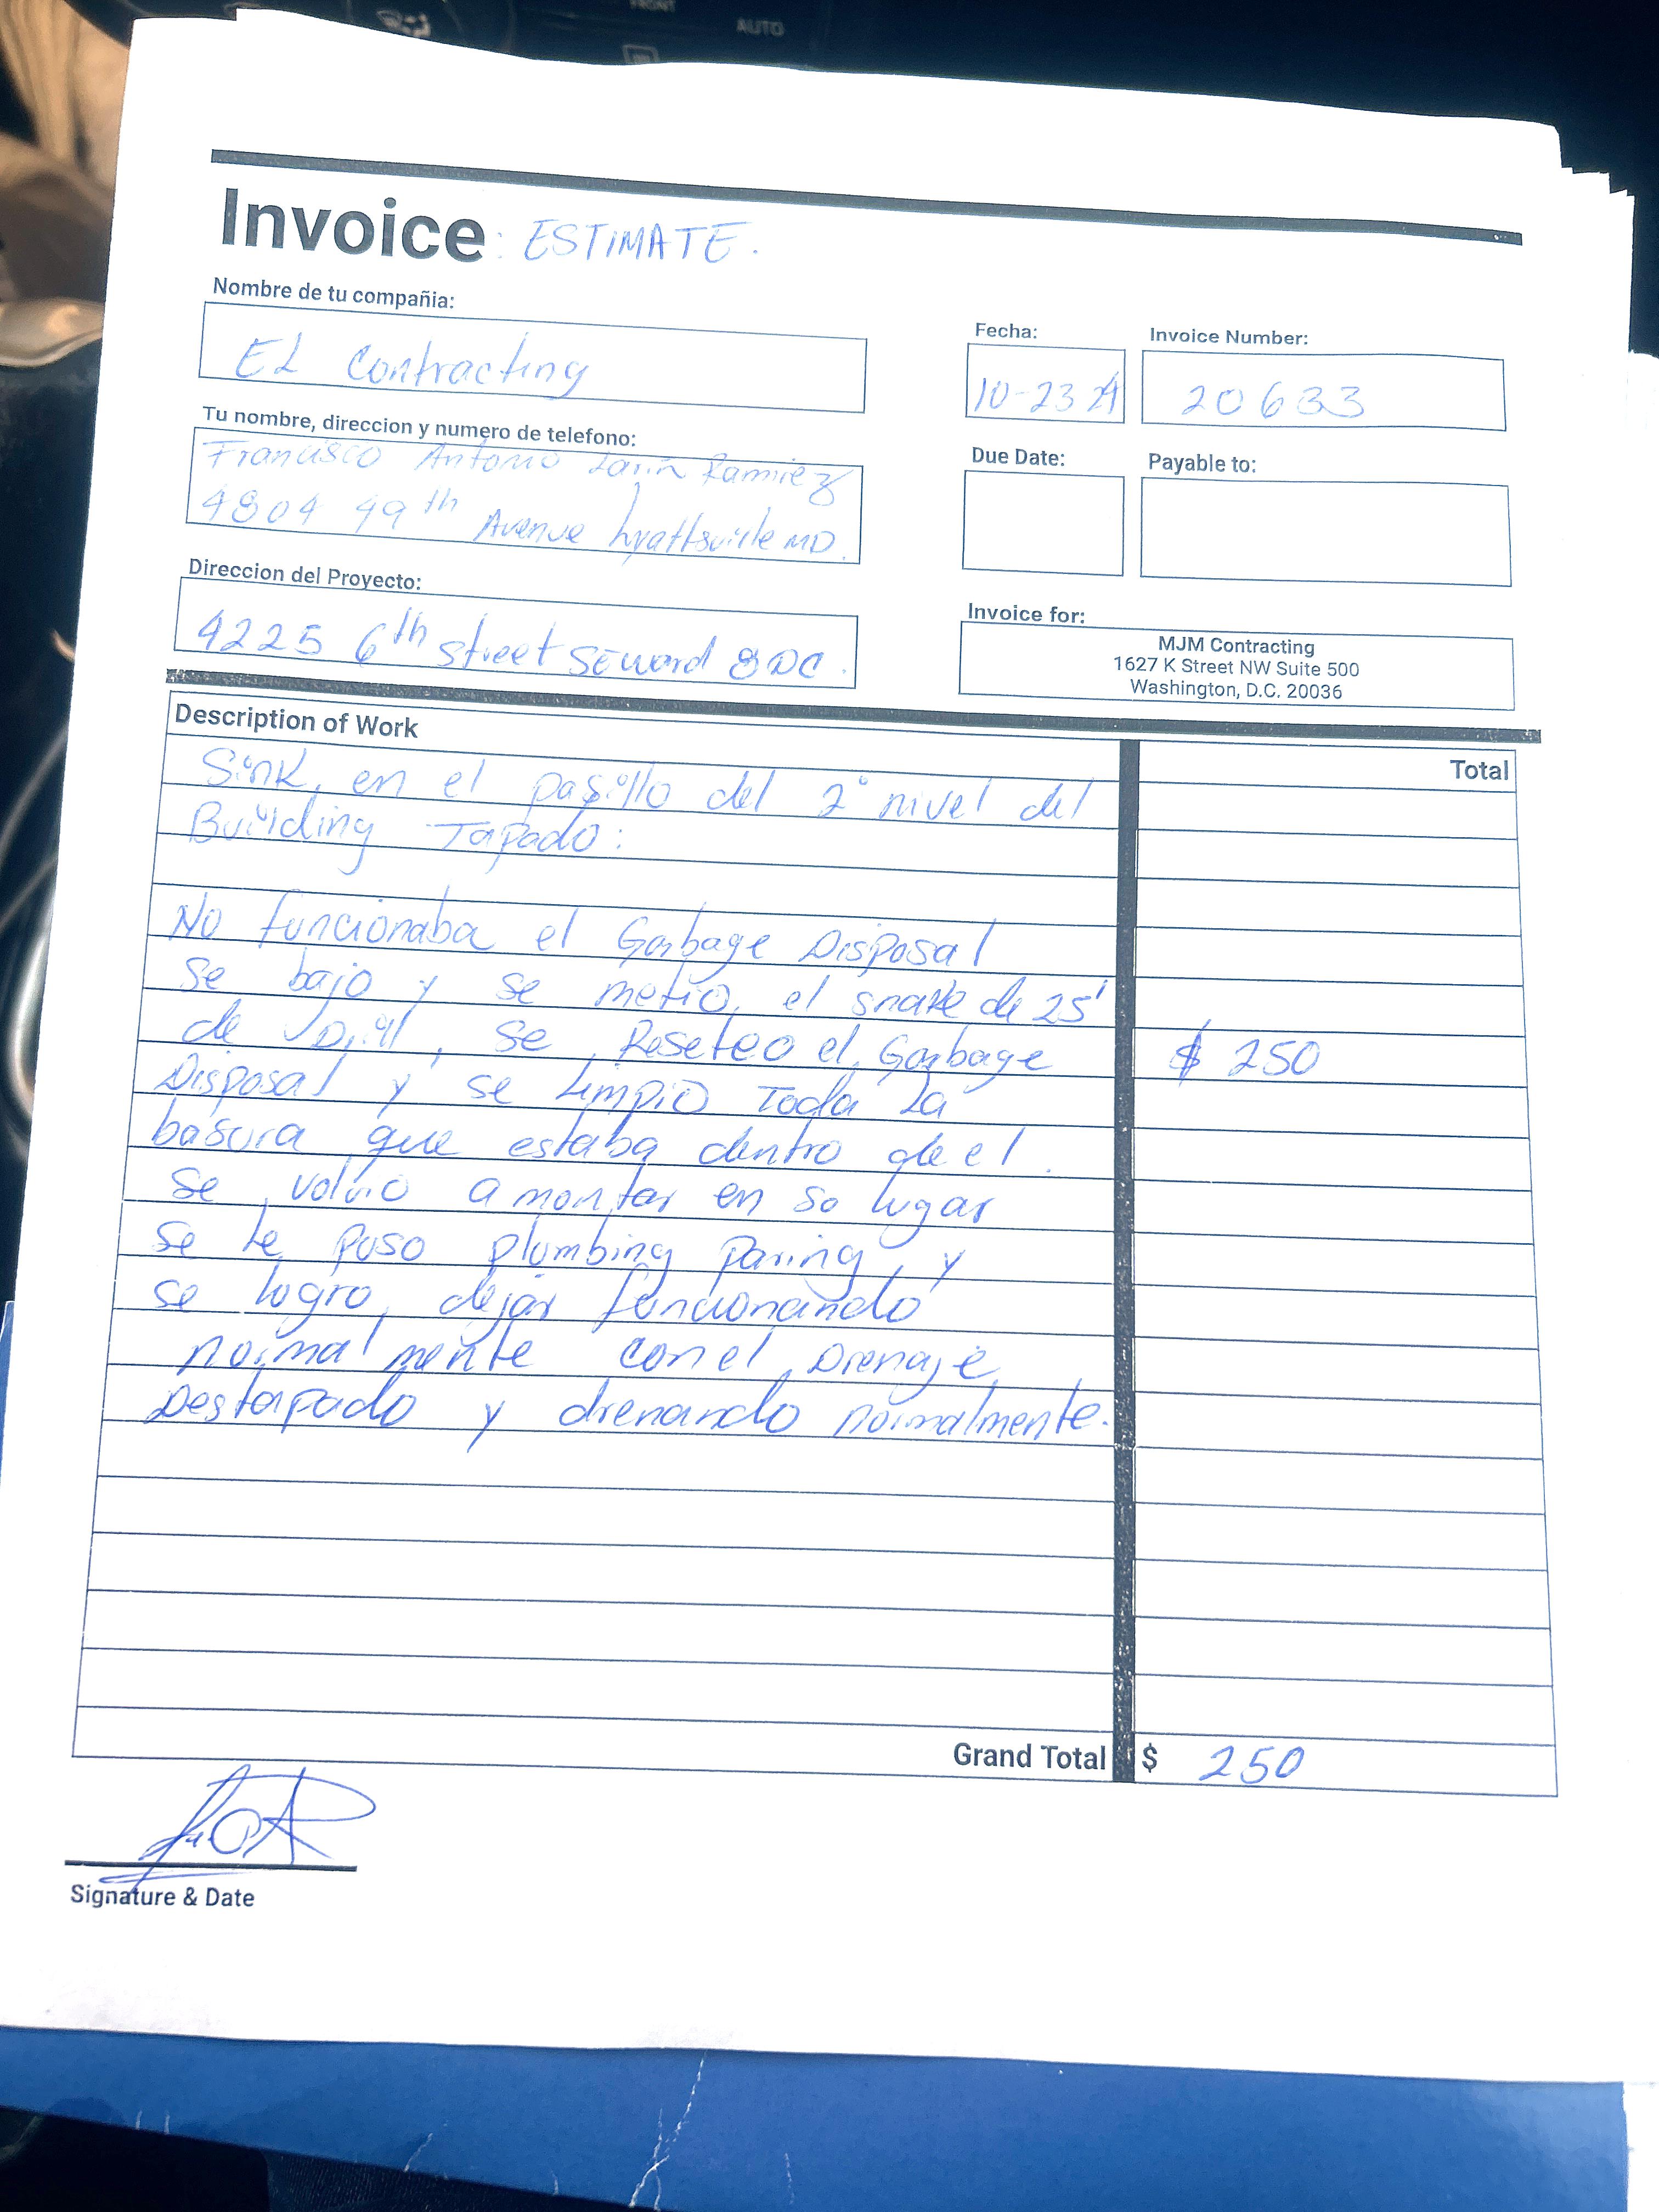 FRONT
AUTO
Invoice : ESTIMATE.
Nombre de tu compañia:
EL Contracting
Fecha:
10-23 24
Invoice Number:
20633
Tu nombre, direccion y numero de telefono:
Francisco Antonio Larin Ramirez
4804 49th Avenue hyattsville MD.
Due Date:
Payable to:
Direccion del Proyecto:
4225 6th street SE ward 8 DC.
Invoice for:
MJM Contracting
1627 K Street NW Suite 500
Washington, D.C. 20036
Description of Work
Total
Sink, en el pasillo del 2° nivel del
Building Tapado:
No funcionaba el Garbage Disposal
se bajo y se metio, el snake de 25'
de Drill, se Reseteo el Garbage
$ 250
Disposal y se Limpio Toda La
basura que estaba dentro de el.
se volvio a montar en so lugar
se le puso plumbing y
se logro, dejar funcionando
normalmente con el Drenaje
Destapado y drenando normalmente.
Grand Total $ 250
Signature & Date